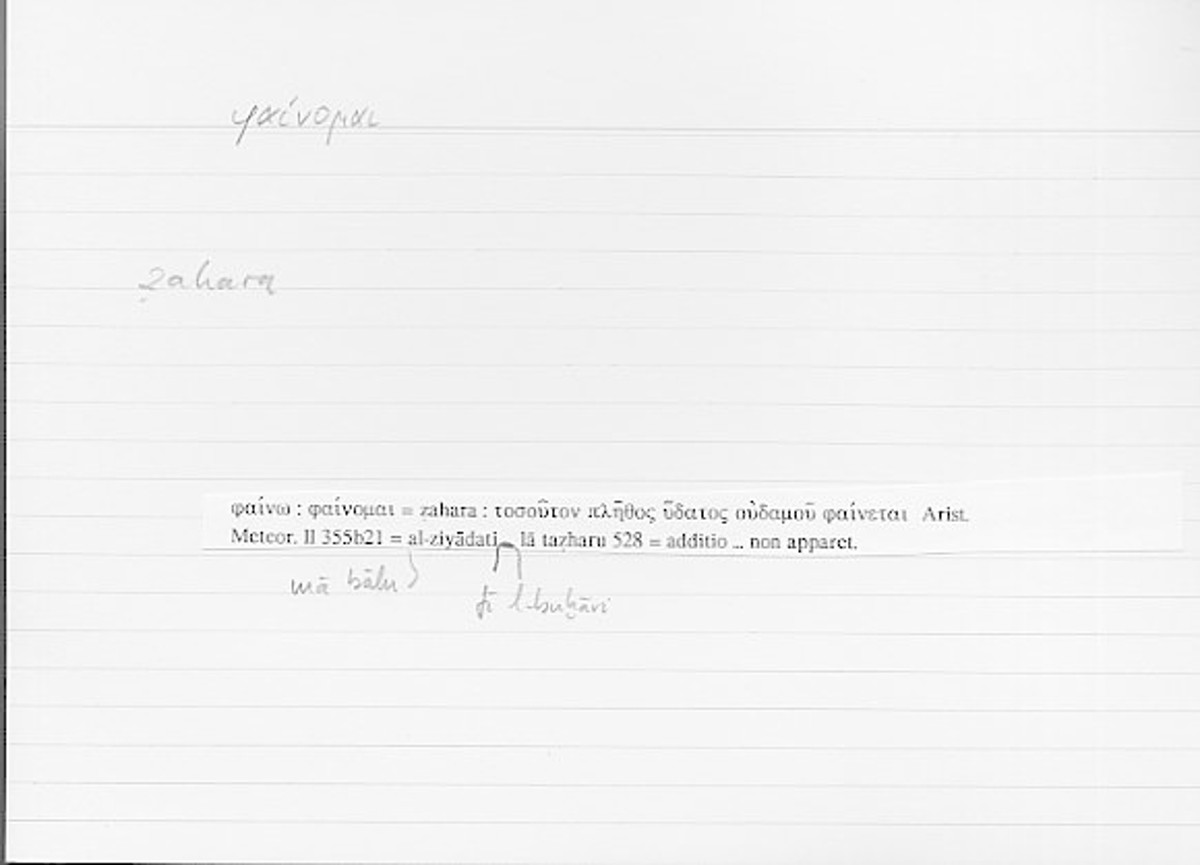 φαίνομαι
ẓahara
φαίνω : φαίνομαι = ẓahara : τοσοῦτον πλῆθος ὕδατος οὐδαμοῦ φαίνεται Arist.
Meteor. II 355b21 = al-ziyādati lā taẓharu 528 = additio ... non apparet.
mā bālu fī l-buḫāri